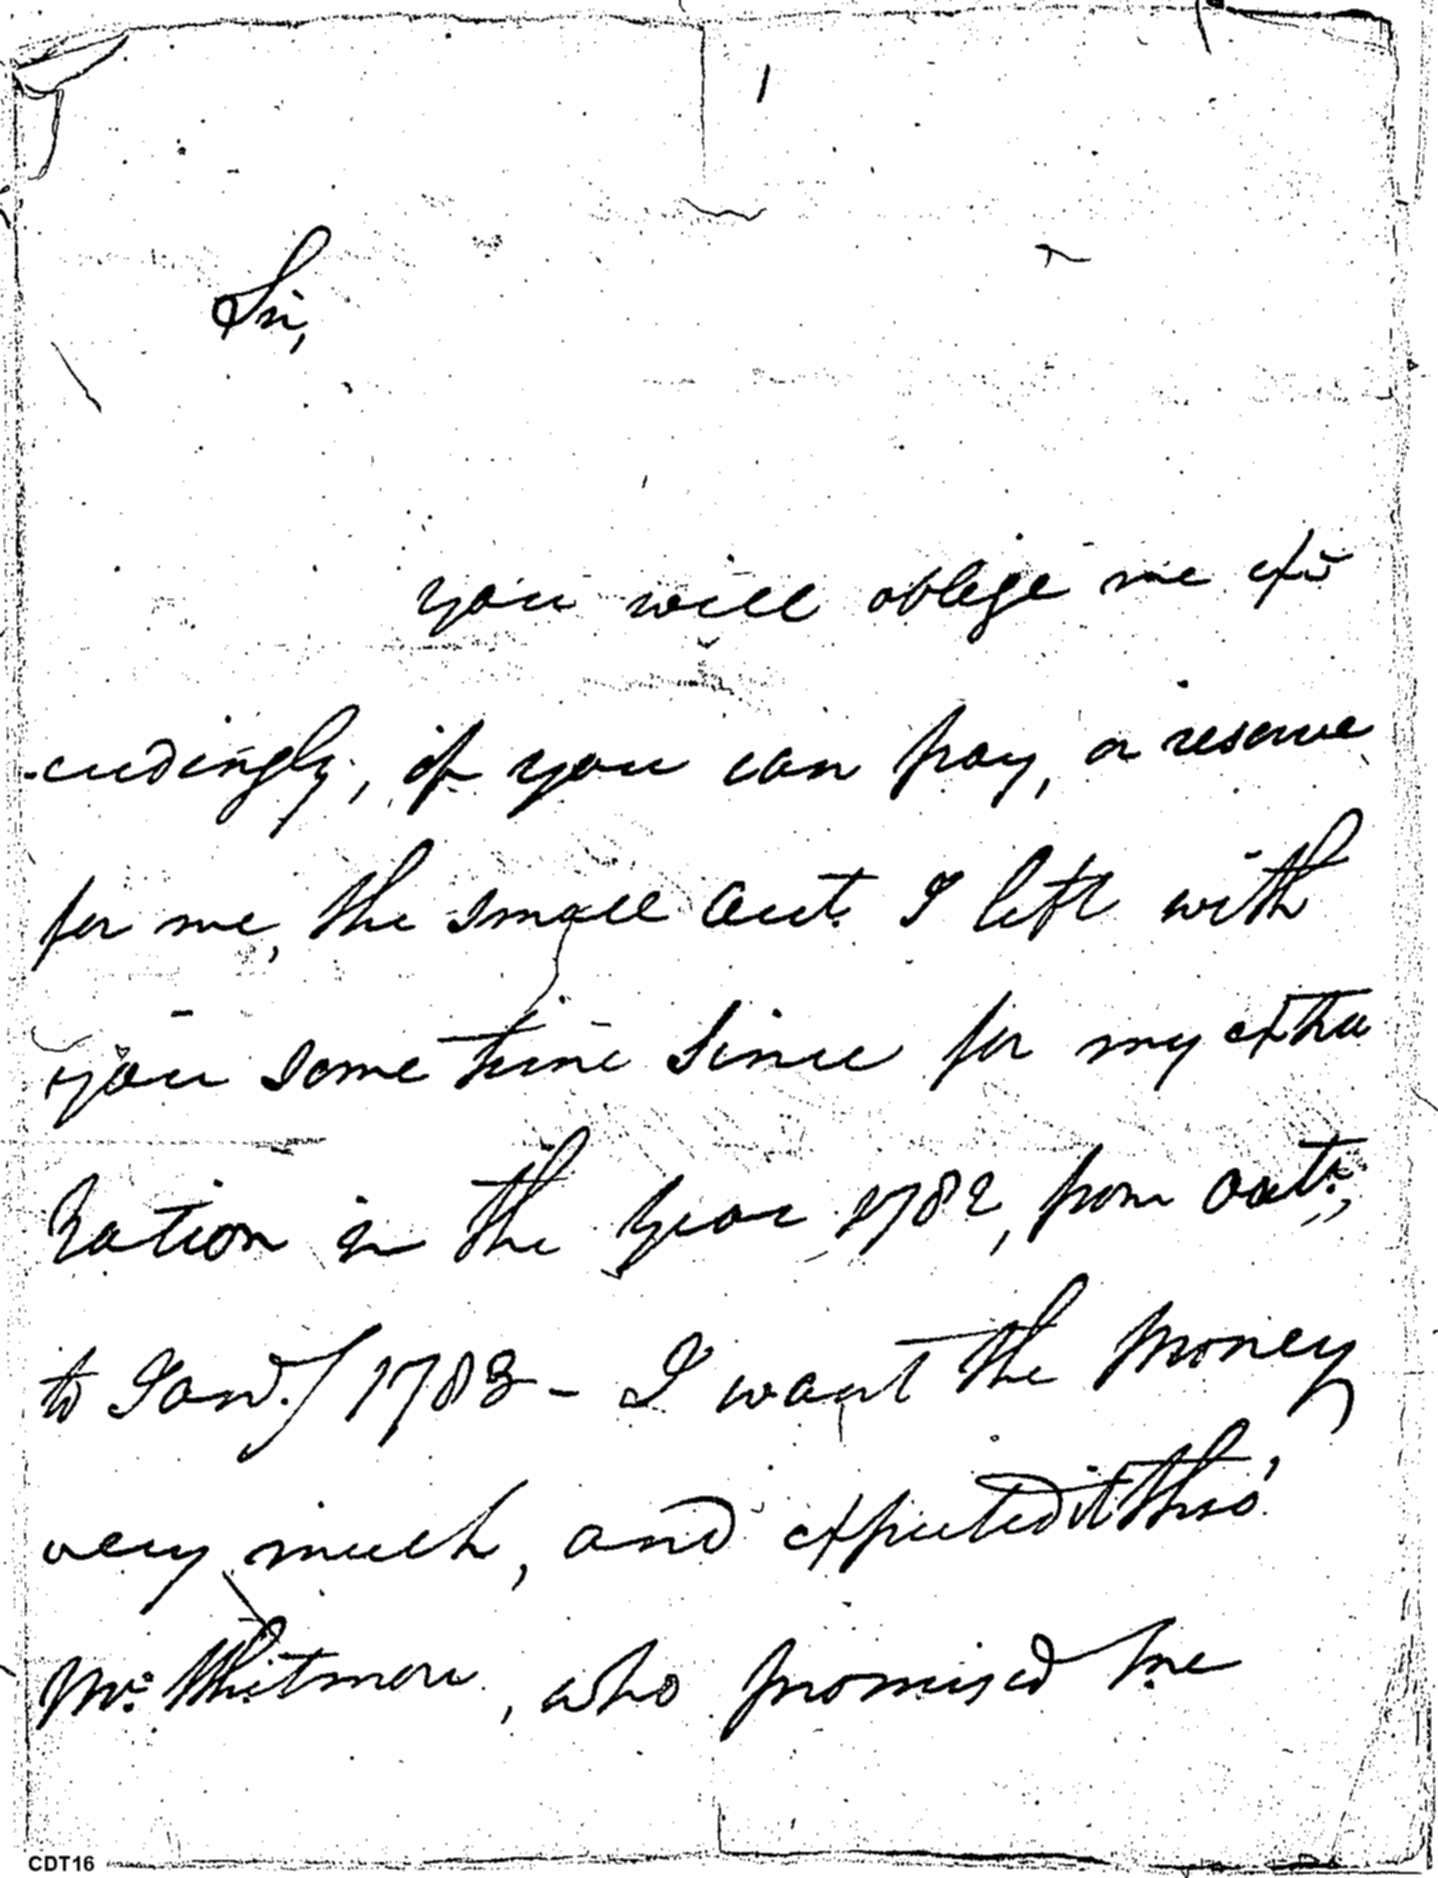 1
Sir,
you will oblege me ex
-ceedingly, if you can pay, or reserve
for me, the small Acct. I left with
you some time since for my extra
Ration in the Year 1782, from Octr.,
to Jany. 1783 - I want the money
very much, and expected it thro'
Mr. Whitmore, who promised me
CDT16